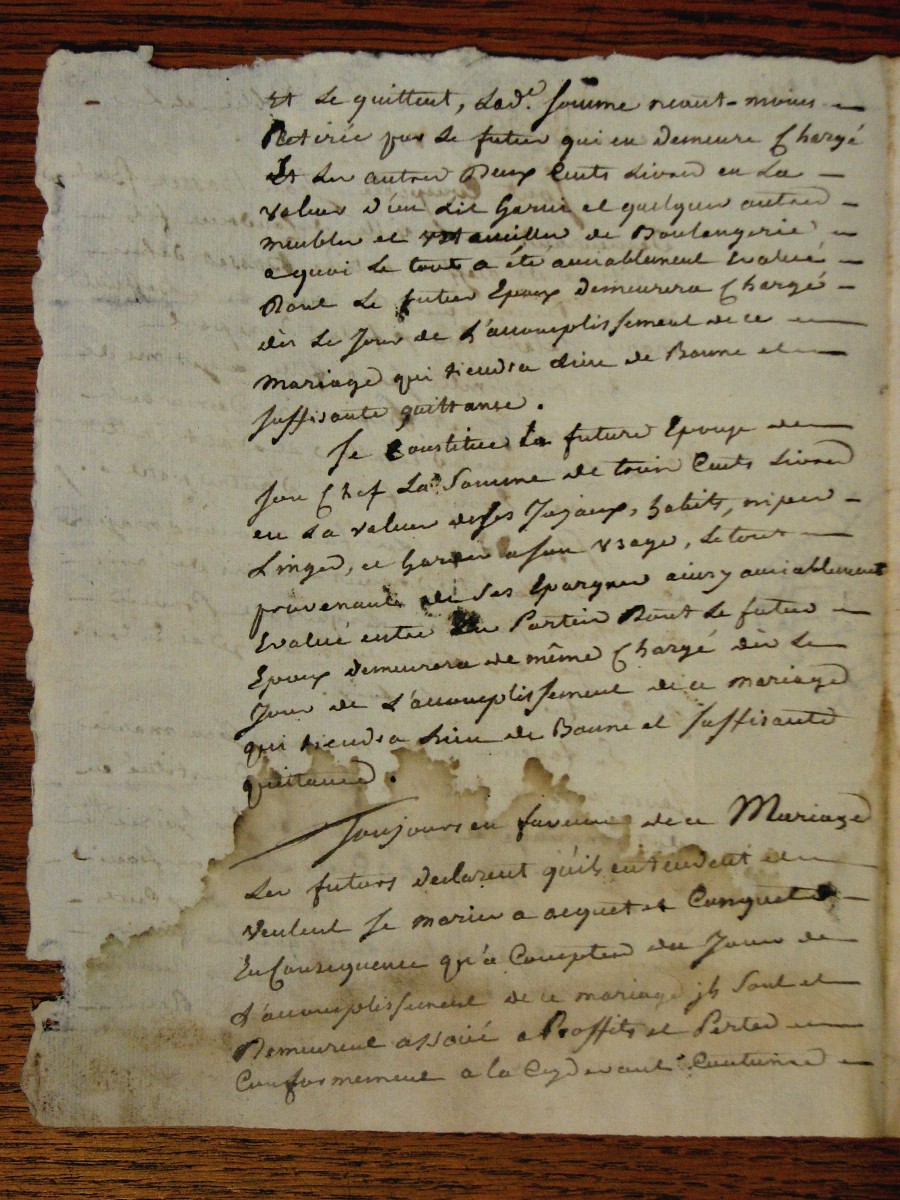 Et le quittent, lad.e somme neant-moins
Retirée par le futur qui en demeure Chargé
Et les autres Deux Cents Livres en La
valeur d'un Lit Garni et quelques autres
meubles et ustancilles de Boulengerie
a quoi le tout a été amiablement Evalué
Dont le futur Epoux demeurera Chargé
dès le Jour de L'accomplissement de ce
mariage qui tiendra Lieu de Bonne et
suffisante quittance.
Se Constitue la future Epouse de
son Chef La Somme de trois Cents Livres
en La valeur de ses Joyaux, habits, nipes
Linges, et Gardes a son usage, le tout
provenants de ses Epargnes ainsy amiablement
Evalué entre les Parties Dont le futur
Epoux demeurera de même Chargé dès le
Jour de L'accomplissement de ce mariage
qui tiendra Lieu de Bonne et suffisante
quittance.
Toujours en faveur de ce Mariage
Les futurs declarent qu'ils entendent et
veulent se marier a acquet et Conquets
En Consequence qu'a Compter du Jour de
L'accomplissement de ce mariage ils sont et
Demeurent associé a Proffits et Pertes
Conformement a la Cydevant Coutume